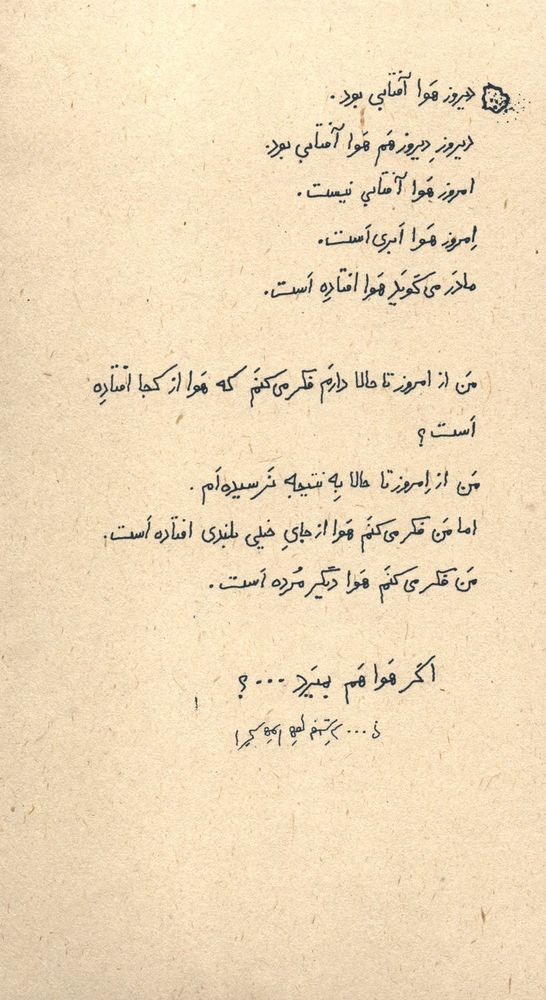 دیروز هَوا آفتابی بود.
دیروزِ دیروز هَم هَوا آفتابی بود.
امروز هَوا آفتابی نیست.
اِمروز هَوا اَبری اَست.
مادَر می‌گویَد هَوا افتادِه اَست.
مَن از امروز تا حالا دارَم فکر می‌کنَم که هَوا از کجا افتادِه
اَست؟
مَن از اِمروز تا حالا بِه نتیجه نَرسیده‌اَم.
اما مَن فکر می‌کنَم هَوا از جایِ خیلی بلندی افتاده اَست.
مَن فکر می‌کنَم هَوا دیگر مُرده اَست.
اگر هَوا هَم بمیرَد ...؟